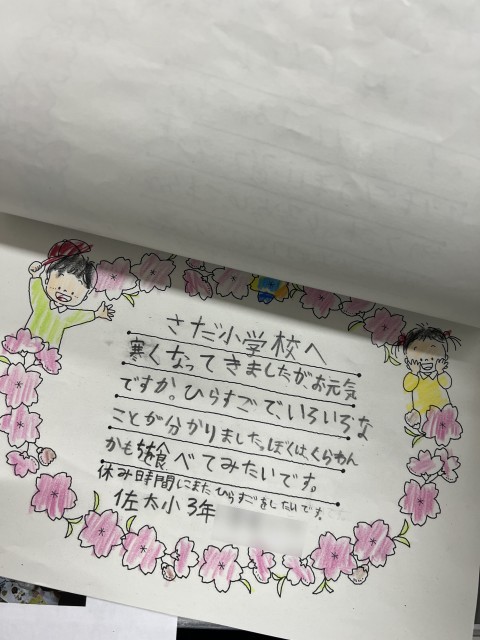 さだ小学校へ
寒くなってきましたがお元気
ですか。ひらすごで、いろいろな
ことが分かりました。ぼくは、くらわん
かも食べてみたいです。
休み時間にまたひらすごをしたいです。
佐太小3年